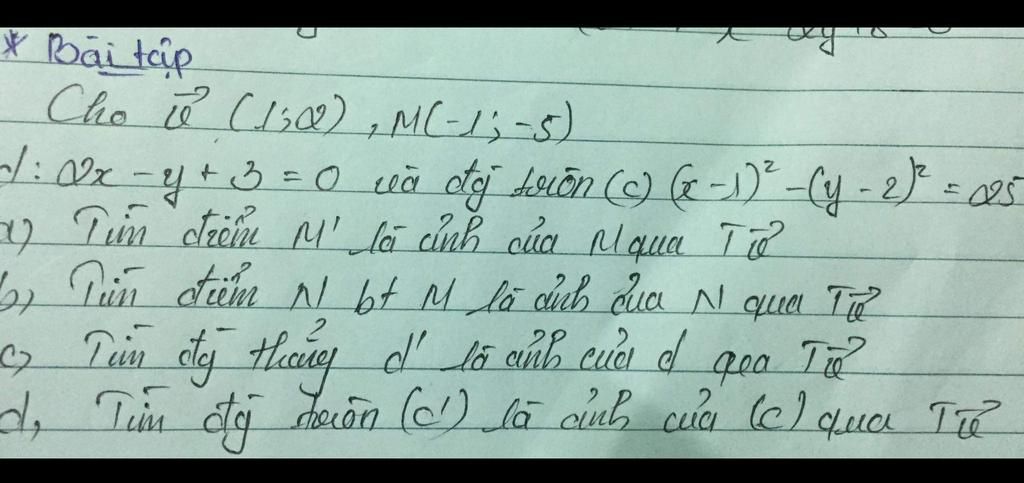 * Bài tập
Cho u⃗ (1;2), M(-1;-5)
d: 2x - y + 3 = 0 và đg tròn (C) (x-1)² - (y-2)² = 25
a) Tìm điểm M' là ảnh của M qua Tu⃗
b, Tìm điểm N bt M là ảnh của N qua Tu⃗
c, Tìm đg thẳng d' là ảnh của d qua Tu⃗
d, Tìm đg tròn (C') là ảnh của (C) qua Tu⃗